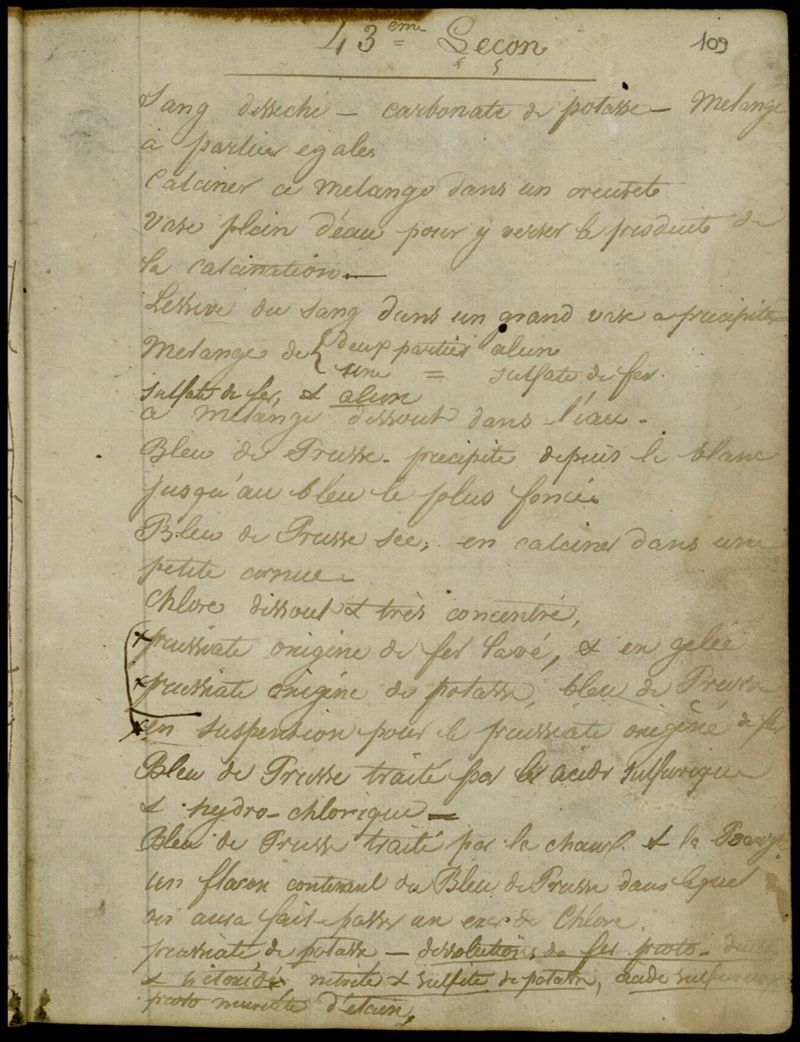 43ème Leçon
109
Sang desseché — carbonate de potasse — Melange
a parties egales
Calciner ce melange dans un creuset
Vase plein d'eau pour y verser le produit de
la calcination —
Lessive du sang dans un grand vase a precipiter
Melange de { deux parties alun
une = sulfate de fer.
sulfate de fer, & alun
ce melange dissout dans l'eau -
Bleu de Prusse - precipité depuis le blanc
jusqu'au bleu le plus foncé.
Bleu de Prusse sec, en calciner dans une
petite cornue -
Chlore dissout & très concentré,
prussiate oxigéné de fer lavé, & en gelée
prussiate oxigéné de potasse, bleu de Prusse
en suspention pour le prussiate oxigéné de fer
Bleu de Prusse traité par les acides sulfurique
& hydro-chlorique —
Bleu de Prusse traité par la chaux & la
un flacon contenant du Bleu de Prusse dans lequel
on aura fait passer un exces de Chlore.
prussiate de potasse — dissolutions de fer proto-
& tritoxide, nitrite & sulfite de potasse, acide sulfureux
proto muriate d'étain,